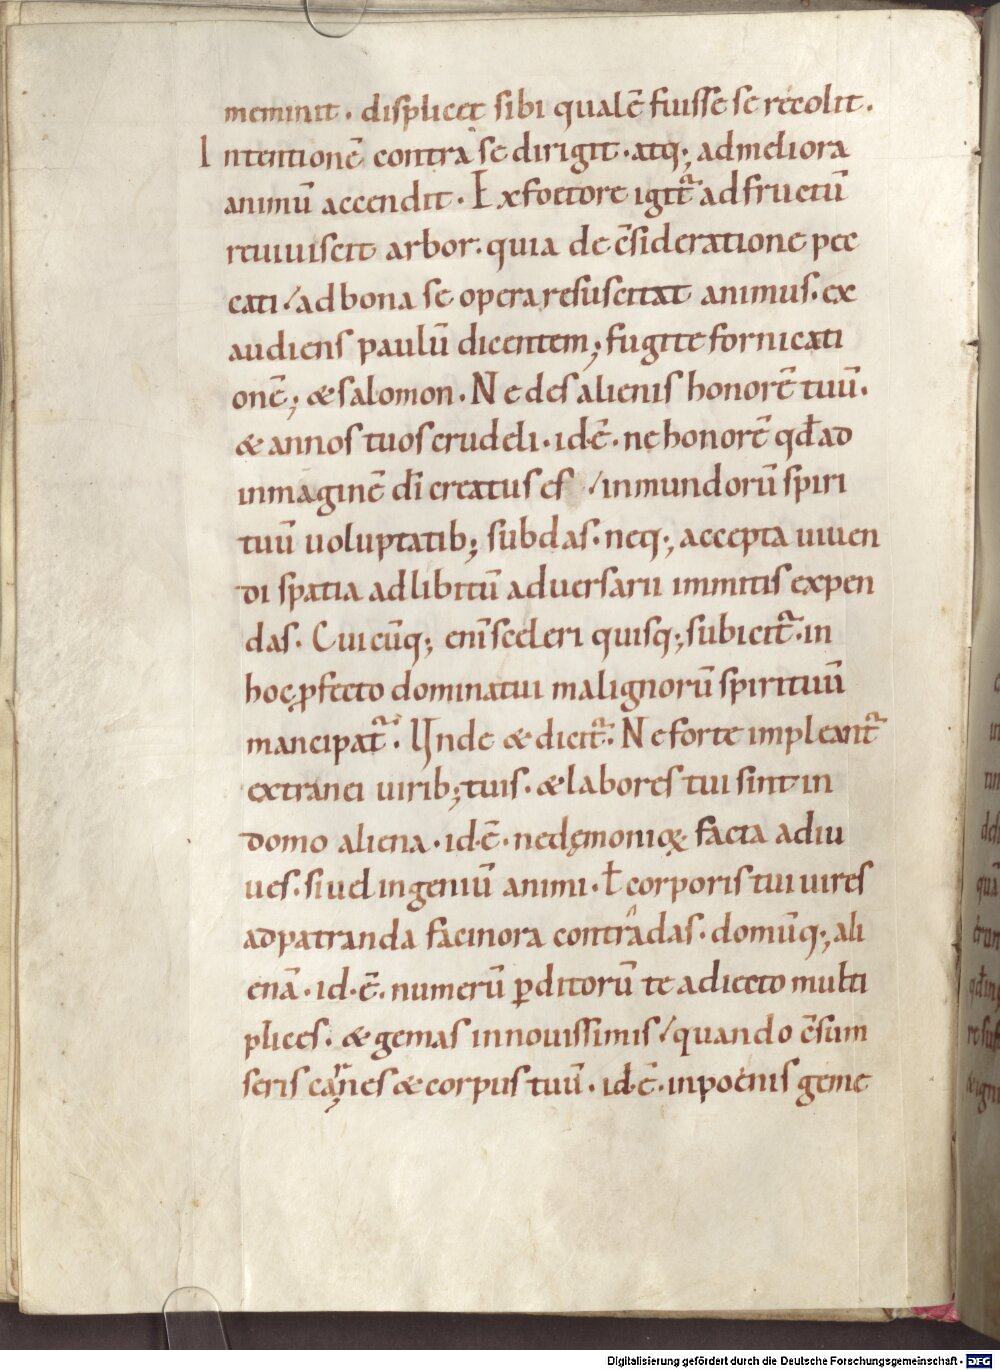 meminit · displicet sibi qualē fuisse se recolit ·
Intentionē contra se dirigit · atq; ad meliora
animū accendit · Ex foetore igit̃ ad fructū
reuiuiscit arbor · quia de c̄sideratione pec
cati / ad bona se opera resuscitat animus · ex
audiens paulū dicentem; fugite fornicati
onē; & salomon · Ne des alienis honorē tuū ·
& annos tuos crudeli · id · ē · ne honorē qđ ad
inmaginē dī creatus es / inmundorū spiri
tuū uoluptatib; subdas · neq; accepta uiuen
di spatia ad libitū aduersarii immitis expen
das · Cuicūq; enī sceleri quisq; subicit̃ · in
hoc ꝓfecto dominatui malignorū spirituū
mancipat̃ · Unde & dicit̃ · Ne forte impleant̃
extranei uirib; tuis · & labores tui sint in
domo aliena · id · ē · ne dęmonioꝝ facta adiu
ues · si uel ingeniū animi · ł corporis tui uires
ad patranda facinora contradas · domūq; ali
enā · id · ē · numerū ꝑditorū te adiecto multi
plices · & gemas in nouissimis / quando c̄sum
seris carnes & corpus tuū · id · ē · in poenis geme
Digitalisierung gefördert durch die Deutsche Forschungsgemeinschaft - DFG